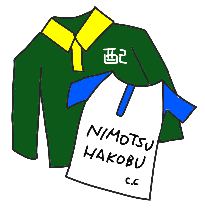 配
NIMOTSU
HAKOBU
C.C